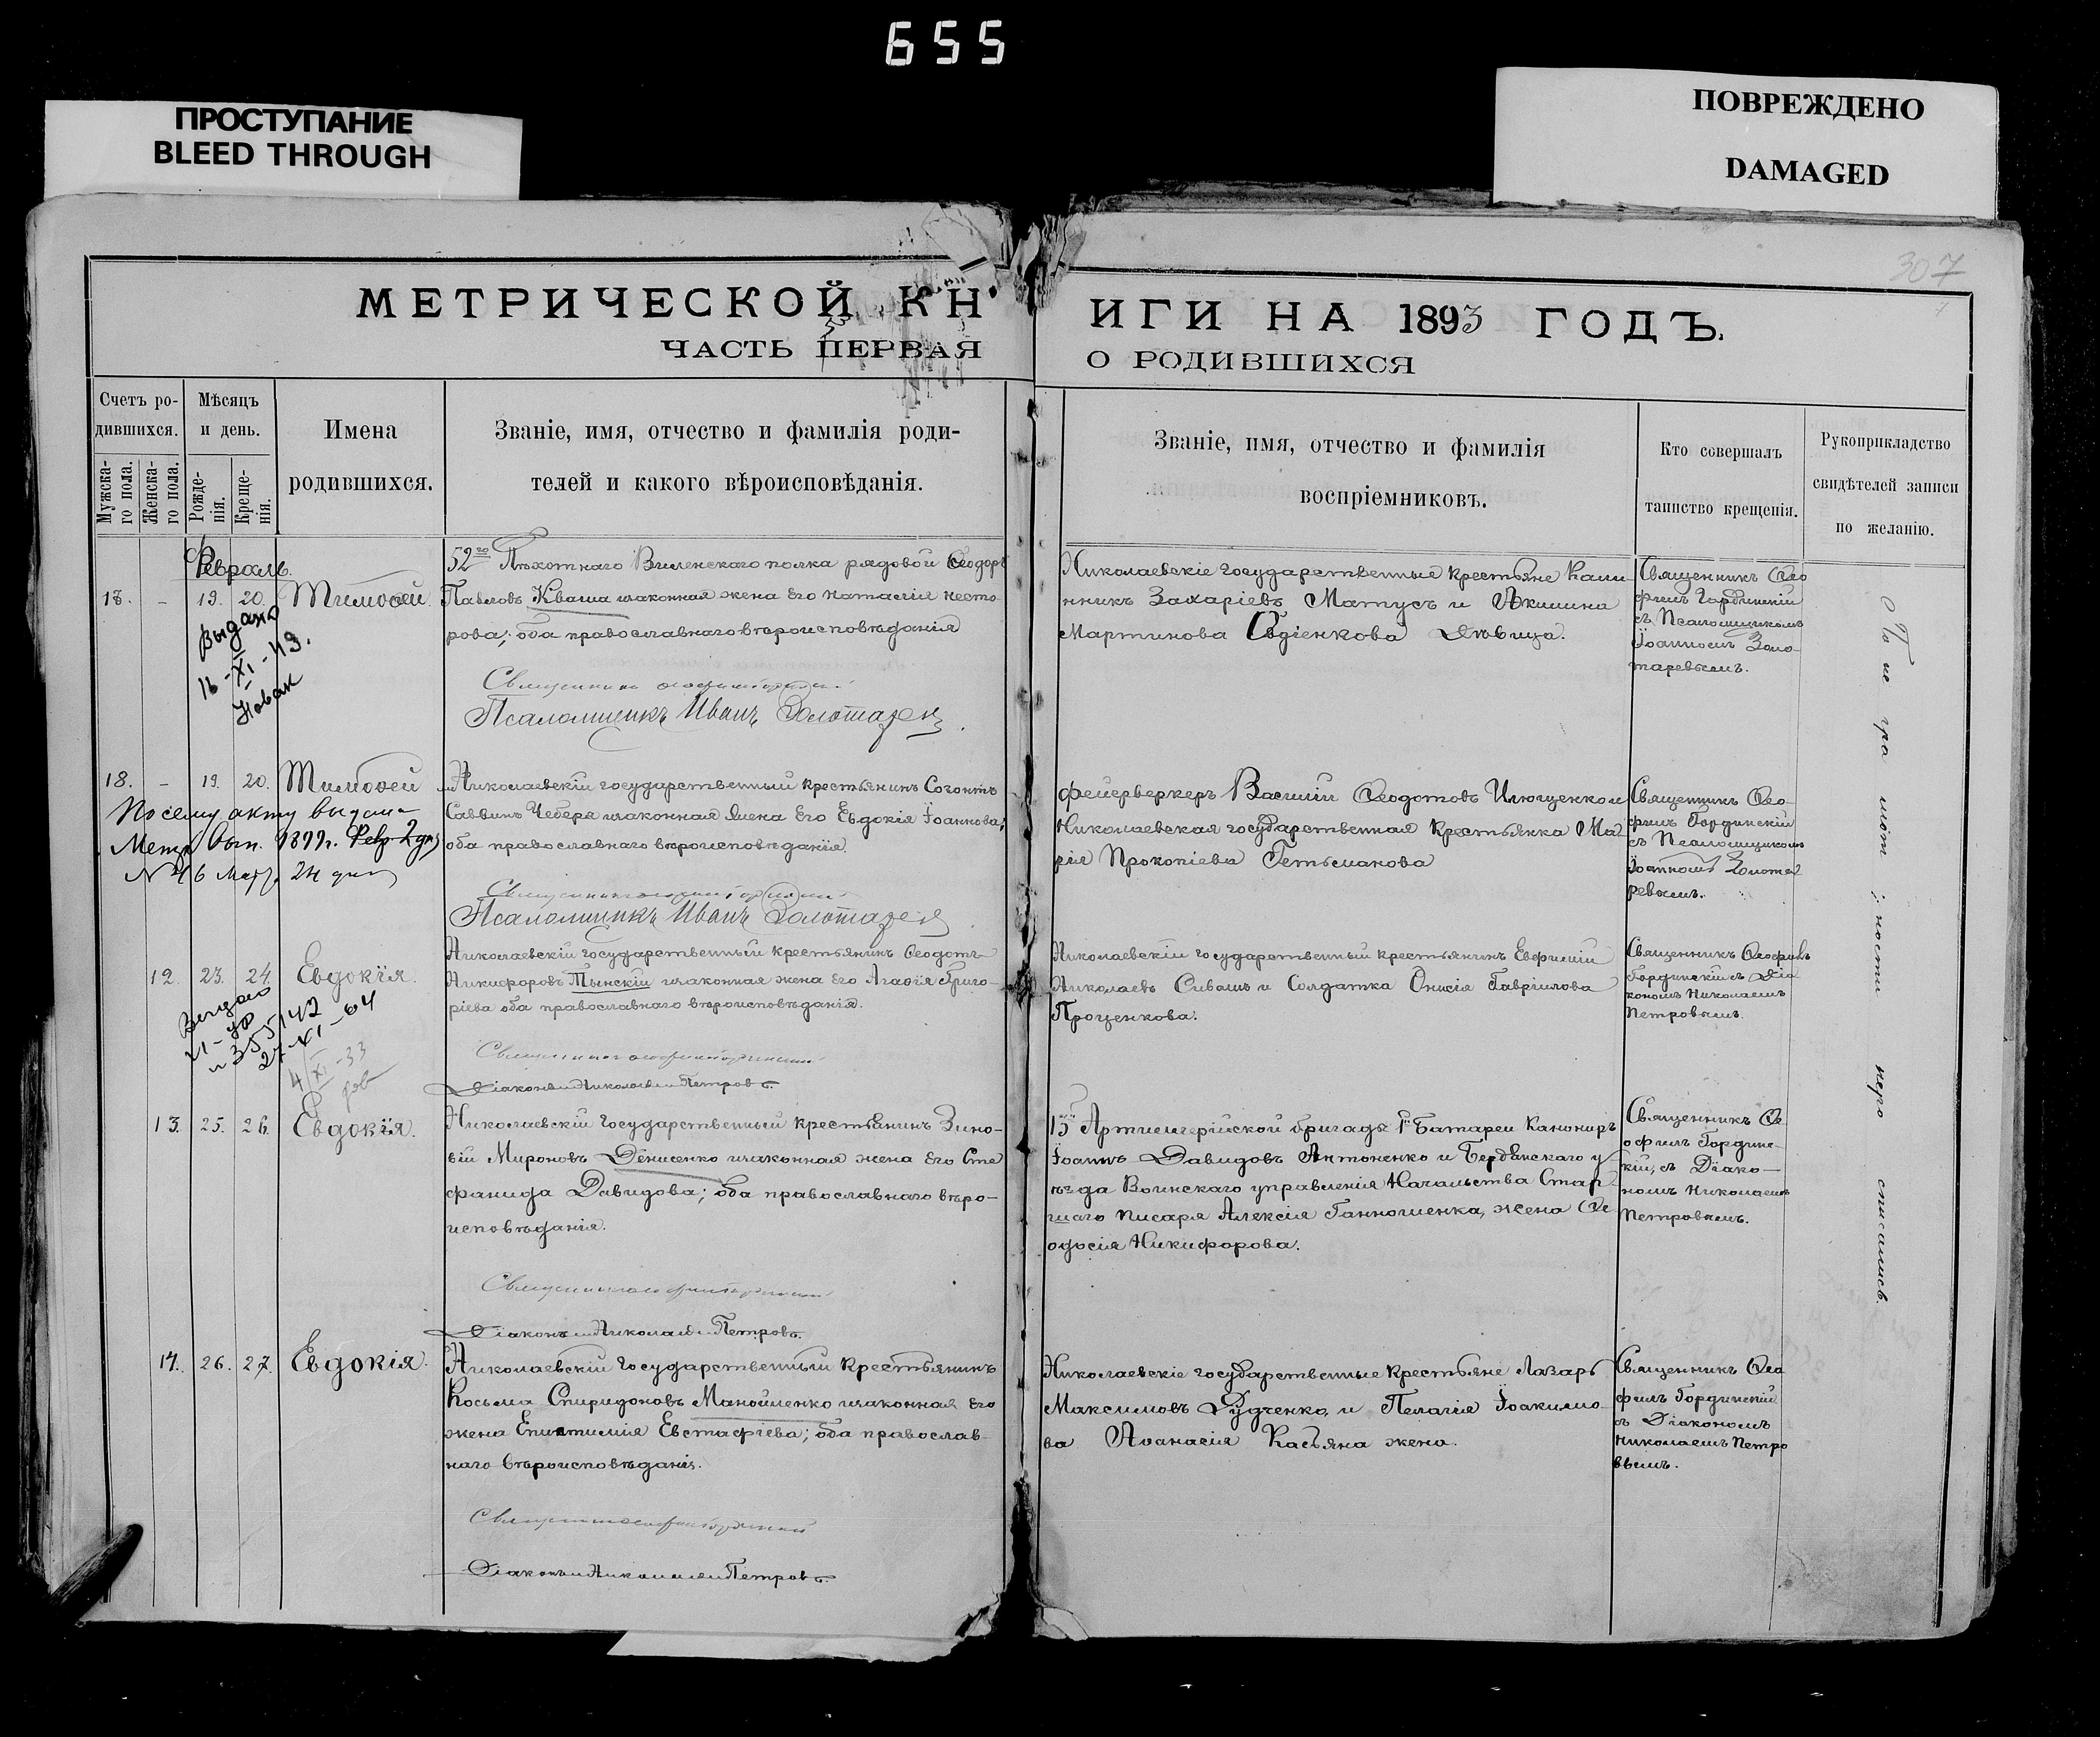 655
ПРОСТУПАНИЕ
BLEED THROUGH
ПОВРЕЖДЕНО
DAMAGED
307
МЕТРИЧЕСКОЙ КНИГИ НА 1893 ГОДЪ.
ЧАСТЬ ПЕРВАЯ О РОДИВШИХСЯ
Счетъ ро-
дившихся.
Мужска-
го пола.
Женска-
го пола.
Мѣсяцъ
и день.
Рожде-
нія.
Креще-
нія.
Имена
родившихся.
Званіе, имя, отчество и фамилія роди-
телей и какого вѣроисповѣданія.
Званіе, имя, отчество и фамилія
воспріемниковъ.
Кто совершалъ
таинство крещенія.
Рукоприкладство
свидѣтелей записи
по желанію.
Февраль.
- 19. 20. Тимоѳей.
Выдано
16-XI-43.
Новак
52го Пѣхотнаго Виленскаго полка рядовой Ѳеодоръ
Павловъ Кваша изаконная жена его Наталія Несто-
рова; оба православнаго вѣроисповѣданія
Псаломщикъ Иванъ Золотарев
Николаевскіе государственные крестьяне Кали-
нникъ Захаріевъ Матусъ и Акилина
Мартинова Євдіенкова дѣвица.
Священникъ Ѳео
филъ Гординскій
съ Псаломщикомъ
Іоанномъ Золо-
таревымъ.
18. - 19. 20. Тимоѳей
По сему акту выдана
Метр. Вып. 1899г. Февр. 2 дня
24 дня
Николаевскій государственный крестьянинъ Созонтъ
Саввинъ Чеберя изаконная жена его Евдокія Іоаннова;
оба православнаго вѣроисповѣданія.
Псаломщикъ Иванъ Золотарев
фейерверкеръ Василій Ѳеодотовъ Илющенко и
Николаевская государственная крестьянка Ма-
рія Прокопіева Гетьманова
Священникъ Ѳео-
филъ Гординскій
съ Псаломщикомъ
Іоанномъ Золота-
ревымъ.
12. 23. 24. Евдокія.
27-XI-64
Николаевскій государственный крестьянинъ Ѳеодотъ
Никифоровъ Тынскій изаконная жена его Агафія Григо-
ріева оба православнаго вѣроисповѣданія.
Діаконъ Николай Петровъ.
Николаевскій государственный крестьянинъ Евфимій
Николаевъ Сивашъ и Солдатка Онисія Гавріилова
Проценкова.
Священникъ Ѳеофилъ
Гординскій съ Діа
кономъ Николаемъ
Петровымъ.
13. 25. 26. Евдокія.
Николаевскій государственный крестьянинъ Зино-
вій Мироновъ Денисенко изаконная жена его Сте
фанида Давидова; оба православнаго вѣро-
исповѣданія.
Діаконъ Николай Петровъ.
15й Артиллерійской бригады 1й Батареи Канониръ
Іоаннъ Давидовъ Антоненко и Бердянскаго у-
ѣзда Воинскаго управленія Начальства Стар-
шаго писаря Алексія Ганношенка, жена Ѳе
одосія Никифорова.
Священникъ Ѳе
офилъ Гордин-
скій, съ Діако-
номъ Николаемъ
Петровымъ.
14. 26. 27. Евдокія.
Николаевскій государственный крестьянинъ
Косьма Спиридоновъ Манойленко изаконная его
жена Епистимія Евстафіева; оба православ-
наго вѣроисповѣданія.
Діаконъ Николай Петровъ.
Николаевскіе государственные крестьяне Лазарь
Максимовъ Дудченко, и Пелагія Іоакимо-
ва Аѳанасія Касьяна жена.
Священникъ Ѳео
филъ Гординскій
съ Діакономъ
Николаемъ Петро
вымъ.